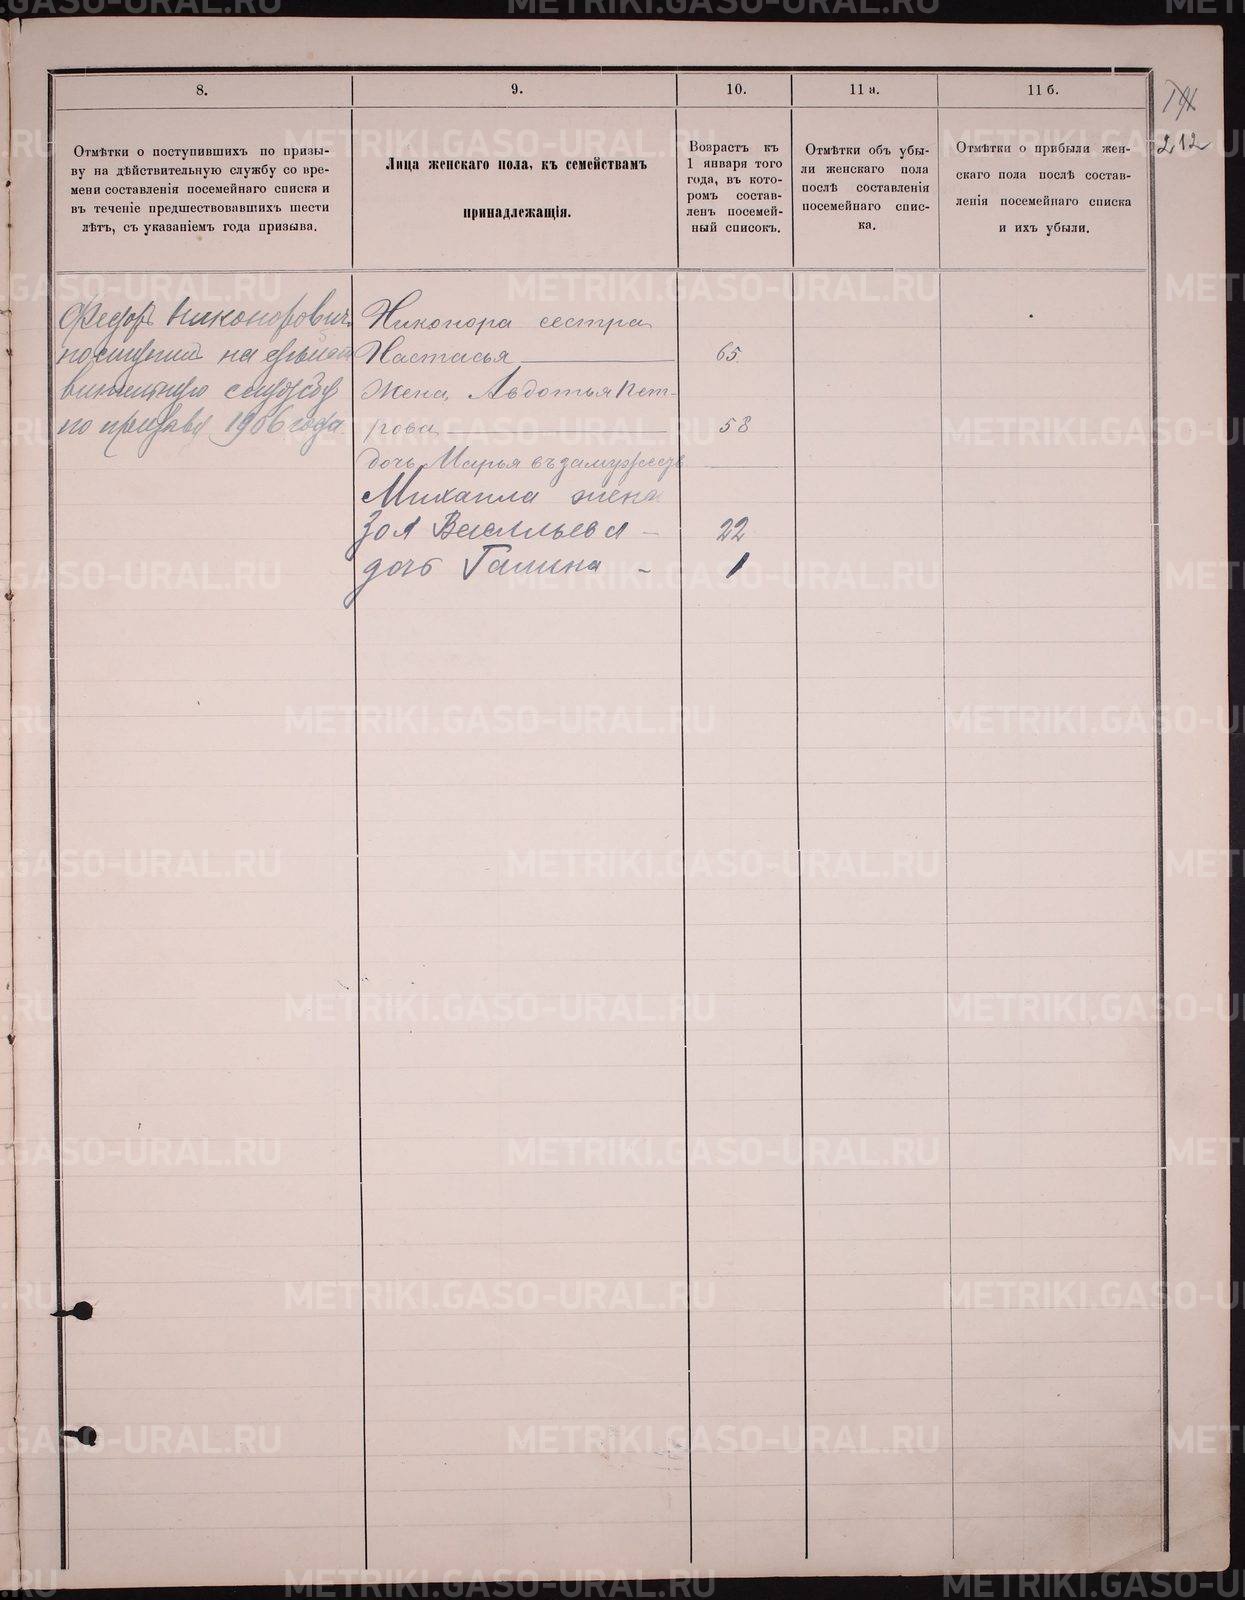 8.
9.
10.
11 а.
11 б.
212
Отмѣтки о поступившихъ по призы-
ву на дѣйствительную службу со вре-
мени составленія посемейнаго списка и
въ теченіе предшествовавшихъ шести
лѣтъ, съ указаніемъ года призыва.
Лица женскаго пола, къ семействамъ
принадлежащія.
Возрастъ къ
1 января того
года, въ кото-
ромъ состав-
ленъ посемей-
ный списокъ.
Отмѣтки объ убы-
ли женскаго пола
послѣ составленія
посемейнаго спис-
ка.
Отмѣтки о прибыли жен-
скаго пола послѣ состав-
ленія посемейнаго списка
и ихъ убыли.
Федоръ Никоноровичъ
поступилъ на дѣйст
вительную службу
по призыву 1906 года
Никонора сестра
Настасья 65
Жена Авдотья Пет-
рова 58
дочь Марья въ замужеств
Михаила жена
Зоя Васильева - 22
дочь Галина - 1
METRIKI.GASO-URAL.RU